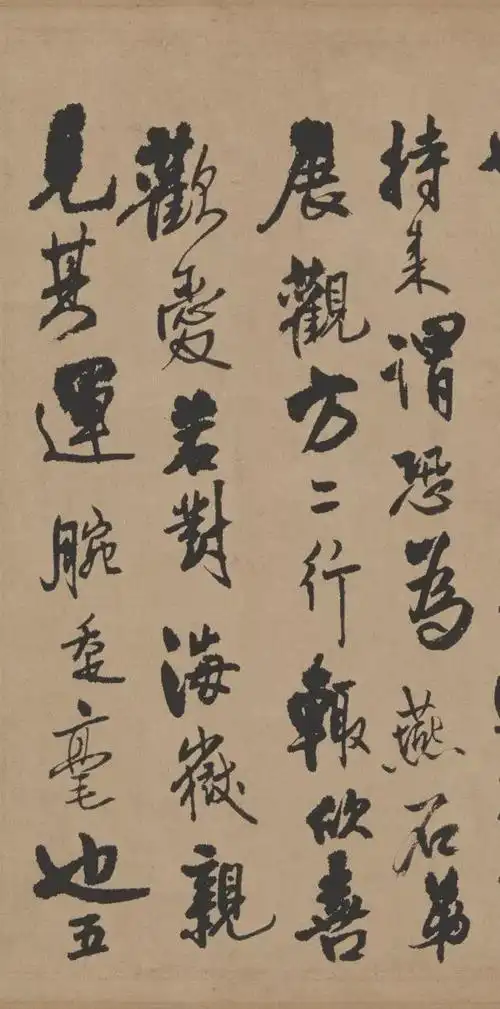 持来謂恐為燕石弟
展觀方二行輙欣善
歡愛若對海嶽親
見其運腕垂毫也五